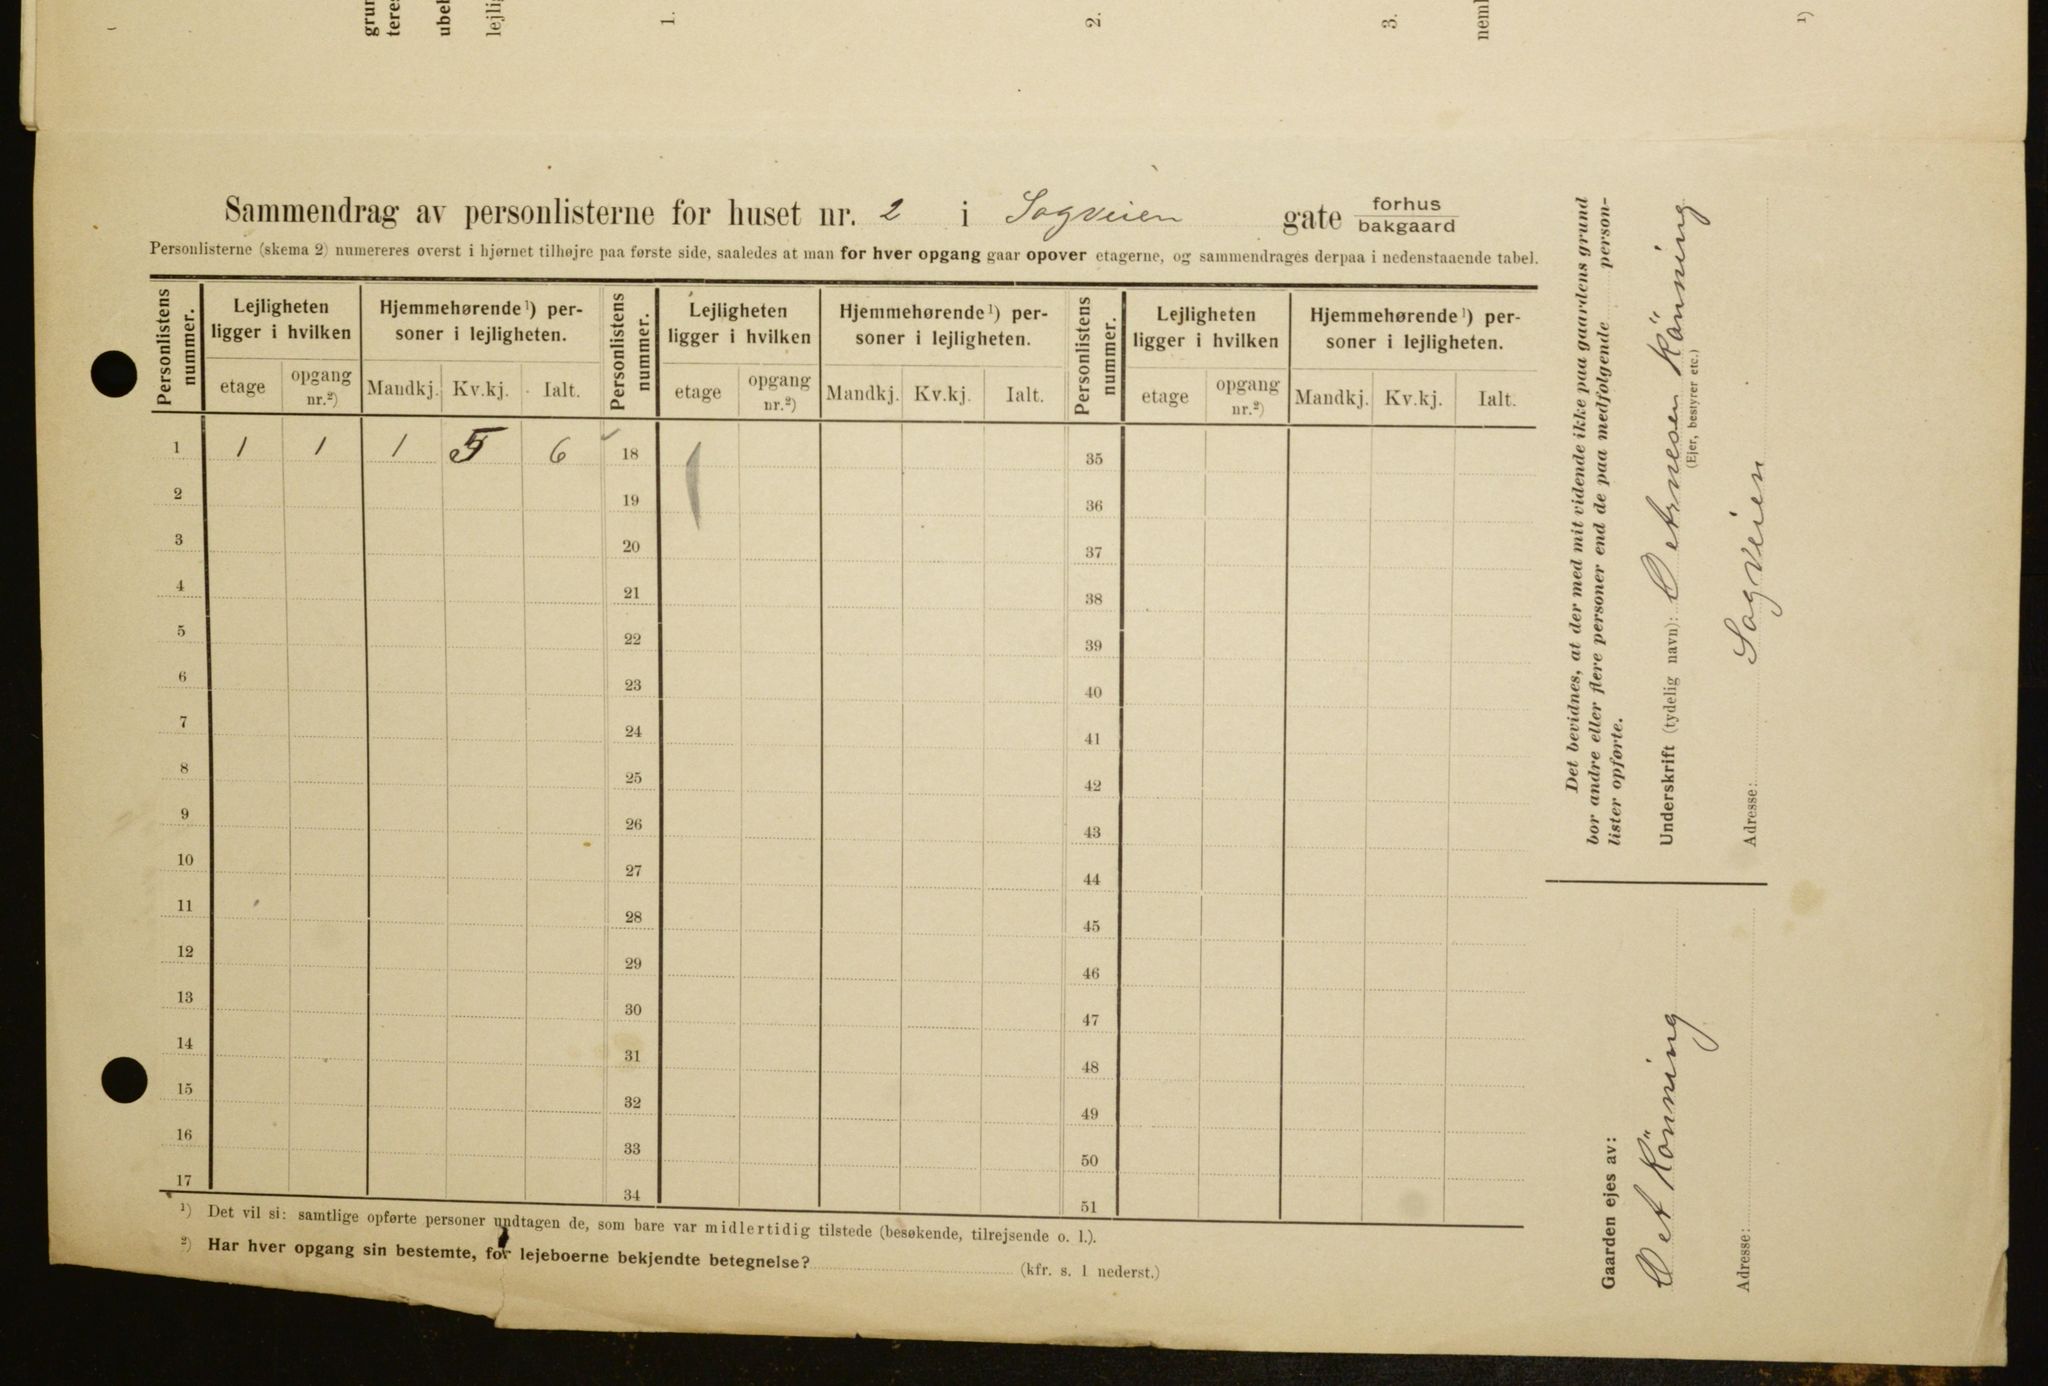 grun
teres
ubel
lejlig
1.
2.
3.
neml
1)
Sammendrag av personlisterne for huset nr. 2 i Sagveien gate forhus
bakgaard
Personlisterne (skema 2) numereres øverst i hjørnet tilhøjre paa første side, saaledes at man for hver opgang gaar opover etagerne, og sammendrages derpaa i nedenstaaende tabel.
Personlistens nummer. Lejligheten ligger i hvilken Hjemmehørende¹) personer i lejligheten. Personlistens nummer. Lejligheten ligger i hvilken Hjemmehørende¹) personer i lejligheten. Personlistens nummer. Lejligheten ligger i hvilken Hjemmehørende¹) personer i lejligheten.
etage opgang nr.²) Mandkj. Kv.kj. Ialt. etage opgang nr.²) Mandkj. Kv.kj. Ialt. etage opgang nr.²) Mandkj. Kv.kj. Ialt.
1 1 1 1 5 6 18 35
2 19 36
3 20 37
4 21 38
5 22 39
6 23 40
7 24 41
8 25 42
9 26 43
10 27 44
11 28 45
12 29 46
13 30 47
14 31 48
15 32 49
16 33 50
17 34 51
¹) Det vil si: samtlige opførte personer undtagen de, som bare var midlertidig tilstede (besøkende, tilrejsende o. l.).
²) Har hver opgang sin bestemte, for lejeboerne bekjendte betegnelse? (kfr. s. 1 nederst.)
Det bevidnes, at der med mit vidende ikke paa gaardens grund
bor andre eller flere personer end de paa medfølgende personlister opførte.
Underskrift (tydelig navn): Arnesen Könning
(Ejer, bestyrer etc.)
Adresse: Sagveien
Gaarden ejes av:
Könning
Adresse: